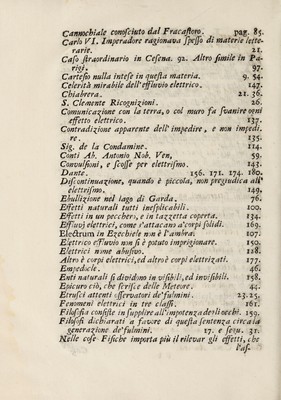 Cannochiale conosciuto dal Fracastoro. pag. 85.
Carlo VI. Imperadore ragionava spesso di materie lette-
rarie. 21.
Caso straordinario in Cesena. 92. Altro simile in Pa-
rigi. 97.
Cartesio nulla intese in questa materia. 9. 54.
Celerità mirabile dell'effluvio elettrico. 147.
Chiabrera. 21. 36.
S. Clemente Ricognizioni. 26.
Comunicazione con la terra, o col muro fa svanire ogni
effetto elettrico. 137.
Contradizione apparente dell' impedire, e non impedi-
re. 135.
Sig. de la Condamine. 114.
Conti Ab. Antonio Nob. Ven, 59.
Convulsioni, e scosse per elettrismo. 143.
Dante. 156. 171. 174. 180.
Discontinuazione, quando è piccola, non pregiudica all'
elettrismo. 149.
Ebullizione nel lago di Garda. 76
Effetti naturali tutti inesplicabili. 100.
Effetti in un pecchero, e in tazzetta coperta. 134.
Effluvj elettrici, come s'attacano a' corpi solidi. 169.
Electrum in Ezechiele non è l'ambra: 107.
Elettrico effluvio non si è potuto imprigionare. 150.
Elettrici nome abusivo. 118.
Altro è corpi elettrici, ed altro è corpi elettrizati. 177.
Empedocle. 46.
Enti naturali si dividono in visibili, ed invisibili. 158.
Epicuro ciò, che scrisse delle Meteore. 44.
Etrusci attenti osservatori de' fulmini. 23.25.
Fenomeni elettrici in tre classi. 161.
Filosofia consiste in supplire all'impotenza degli occhi. 159.
Filosofi dichiarati a favore di questa sentenza circa la
generazione de' fulmini. 17. e sequ. 31.
Nelle cose Fisiche importa più il rilevar gli effetti, che